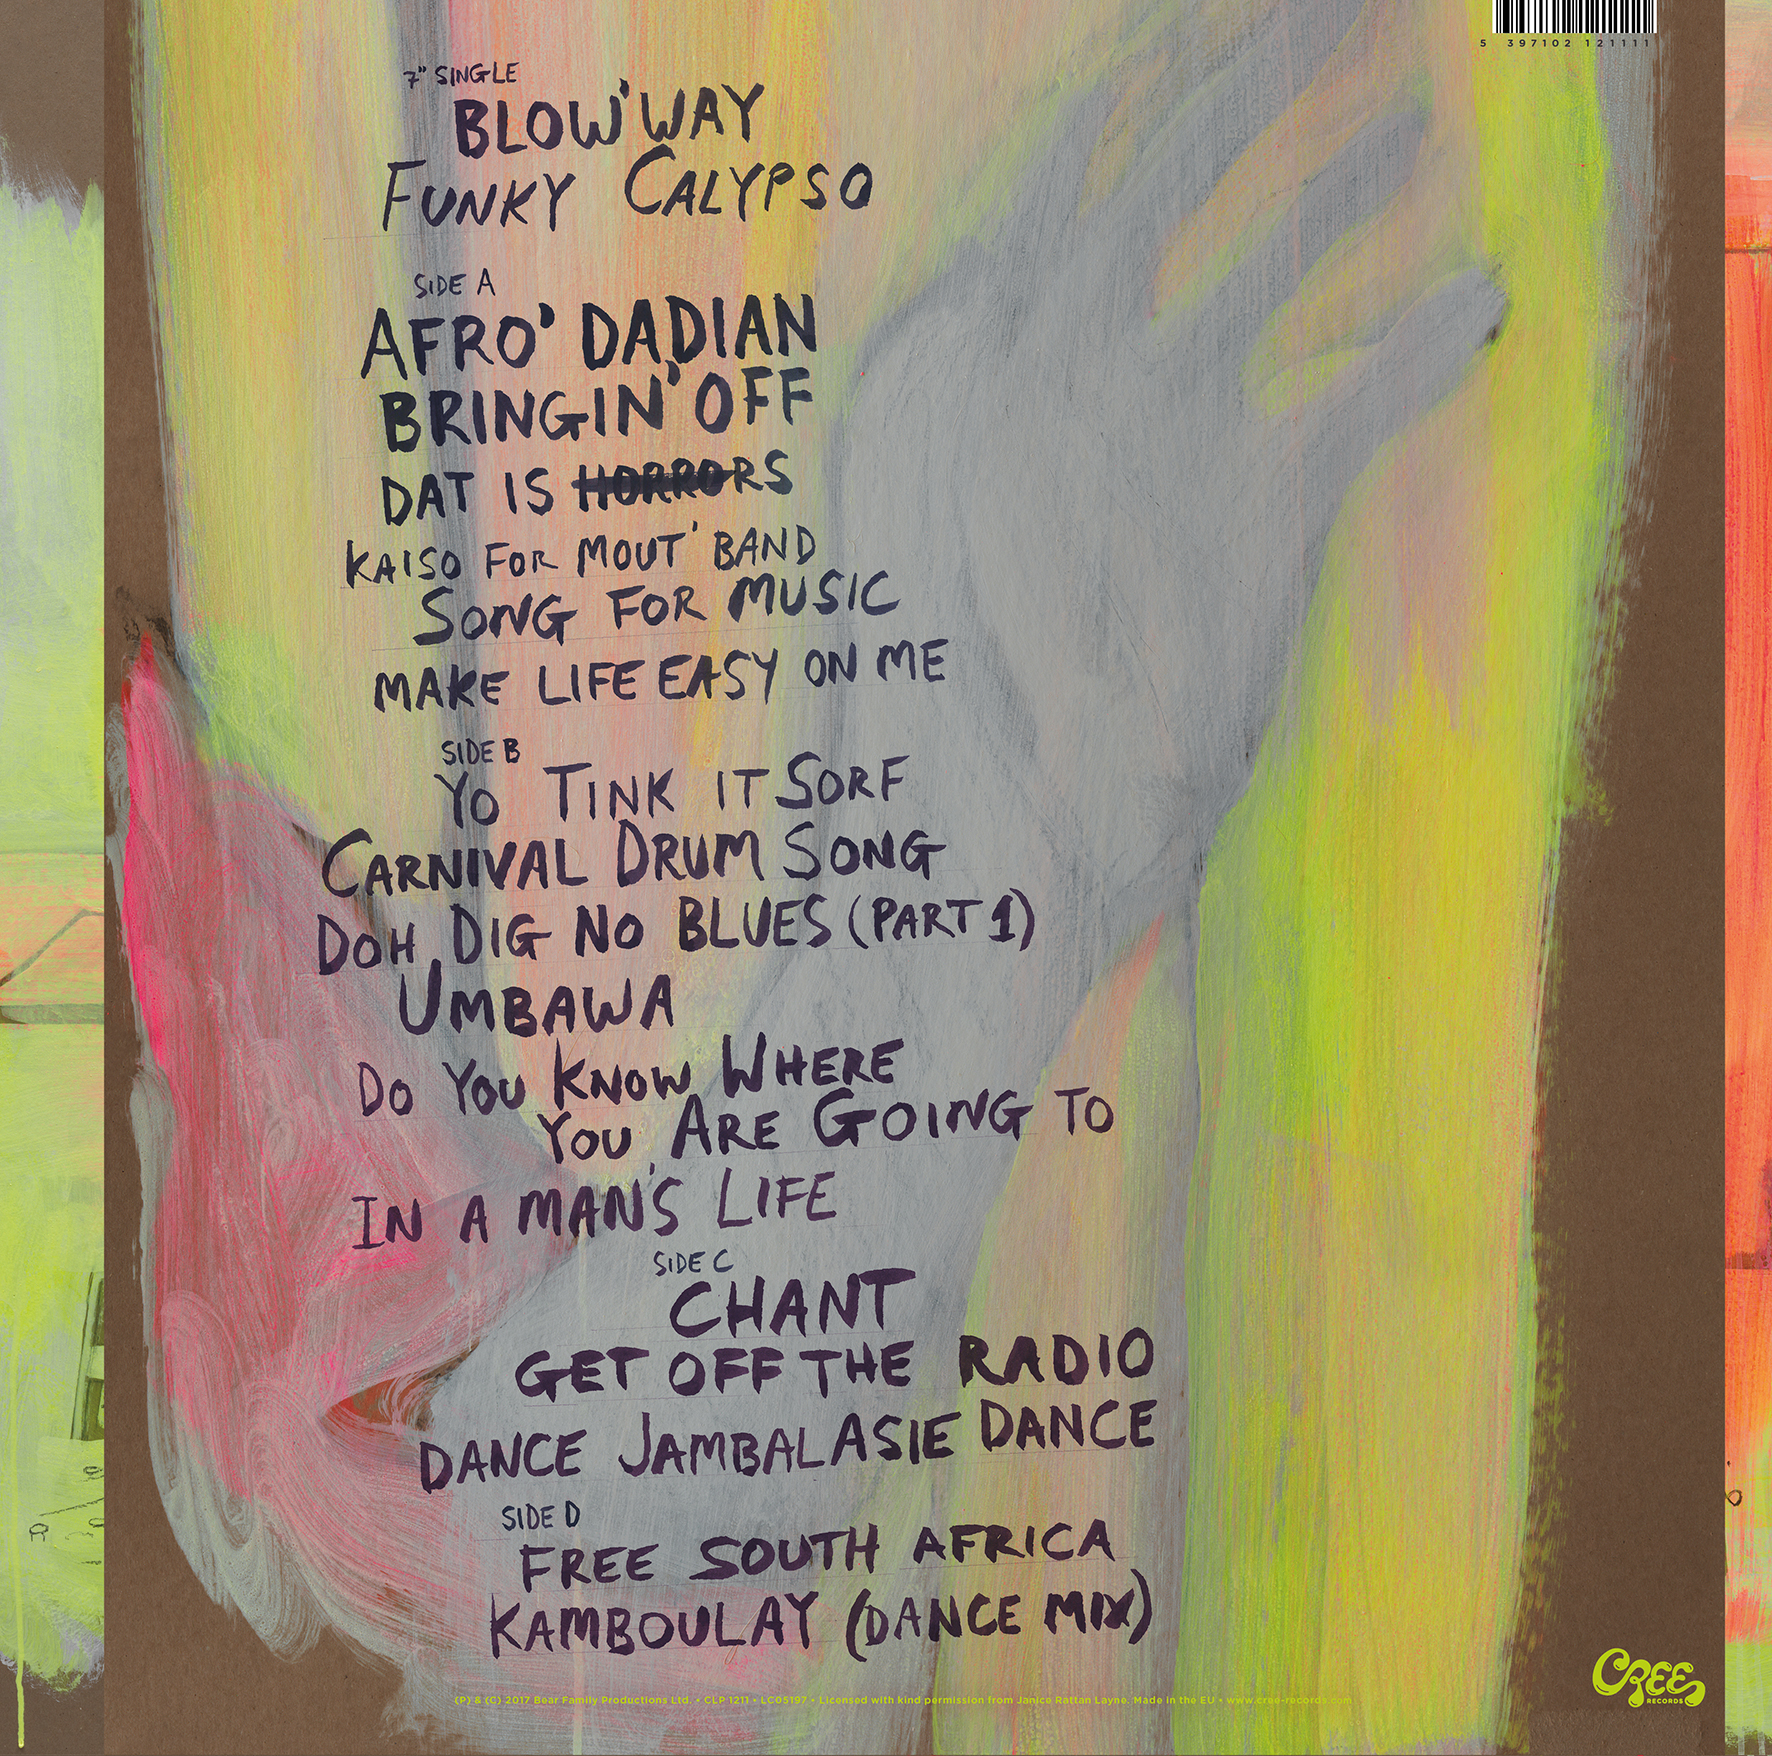 5 397102 121111
7" SINGLE
BLOW'WAY
FUNKY CALYPSO
SIDE A
AFRO' DADIAN
BRINGIN' OFF
DAT IS HORRORS
KAISO FOR MOUT' BAND
SONG FOR MUSIC
MAKE LIFE EASY ON ME
SIDE B
YO TINK IT SORF
CARNIVAL DRUM SONG
DOH DIG NO BLUES (PART 1)
UMBAWA
DO YOU KNOW WHERE
YOU ARE GOING TO
IN A MAN'S LIFE
SIDE C
CHANT
GET OFF THE RADIO
DANCE JAMBALASIE DANCE
SIDE D
FREE SOUTH AFRICA
KAMBOULAY (DANCE MIX)
(P) & (C) 2017 Bear Family Productions Ltd. • CLP 1211 • LC05197 • Licensed with kind permission from Janice Rattan Layne. Made in the EU • www.cree-records.com
CREE
RECORDS